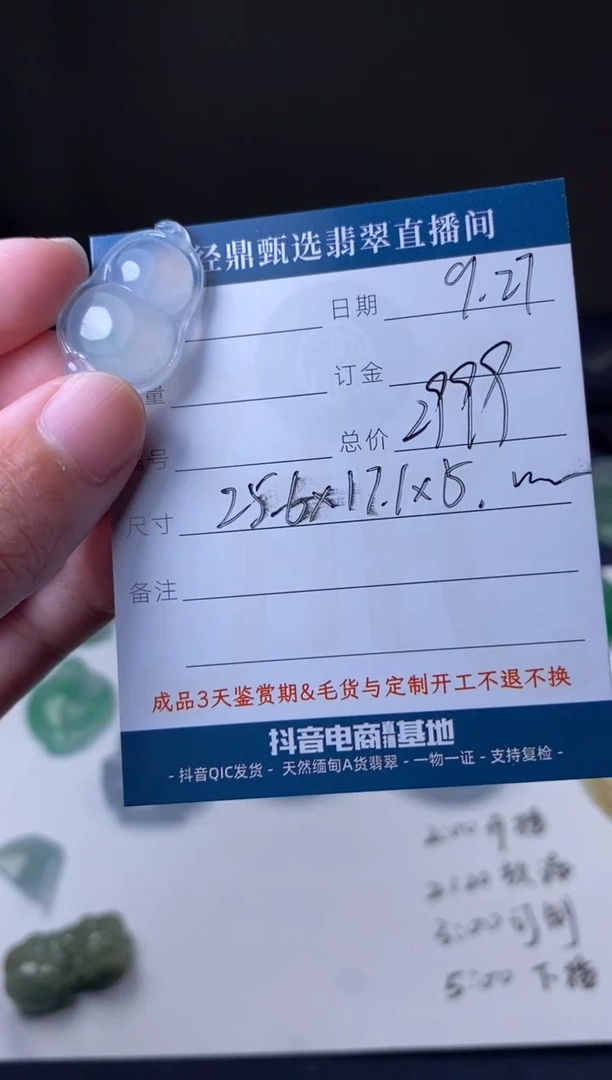 经鼎甄选翡翠直播间
日期 9.27
量 订金
编号 总价 2999
尺寸 25.6×17.1×5.
备注
成品3天鉴赏期&毛货与定制开工不退不换
抖音电商直播基地
- 抖音QIC发货 - 天然缅甸A货翡翠 - 一物一证 - 支持复检 -
2:00 开播
5:00 下播